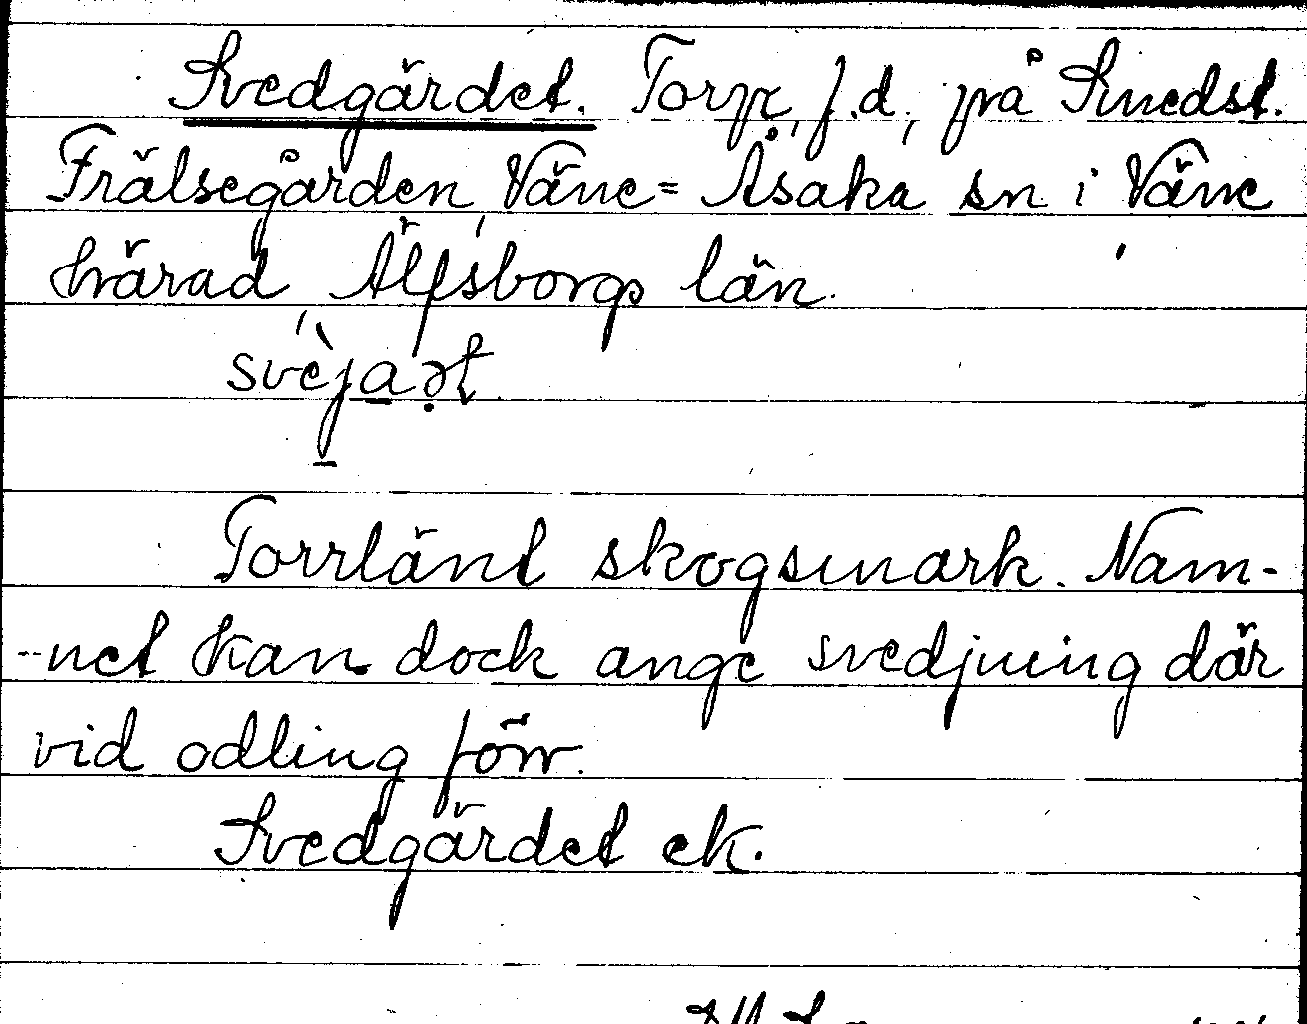 Svedgärdet. Torp, f.d., på Smedst.
Frälsegården, Väne-Åsaka sn i Väne
härad, Älfsborgs län.
Torrländ skogsmark. Nam-
-net kan dock ange svedjning där
vid odling förr.
Svedgärdet ek.